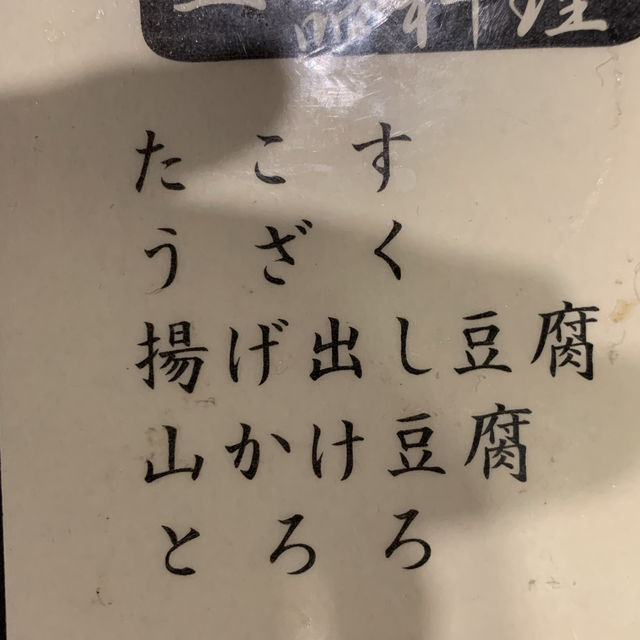 一品料理
たこす
うざく
揚げ出し豆腐
山かけ豆腐
とろろ